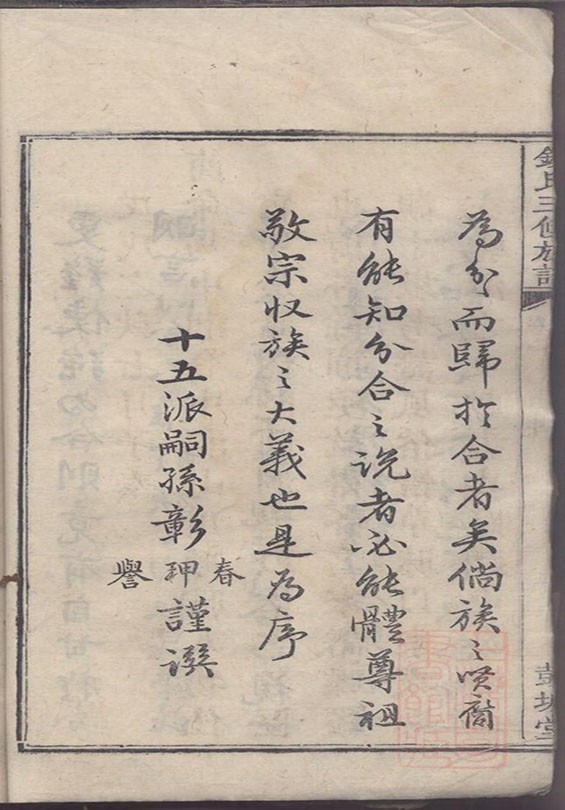 錢氏三修族譜
為分而歸於合者矣倘族之賢裔
有能知分合之說者必能體尊祖
敬宗收族之大義也是為序
十五派嗣孫彰
春
玾
譽
謹譔
彭城堂